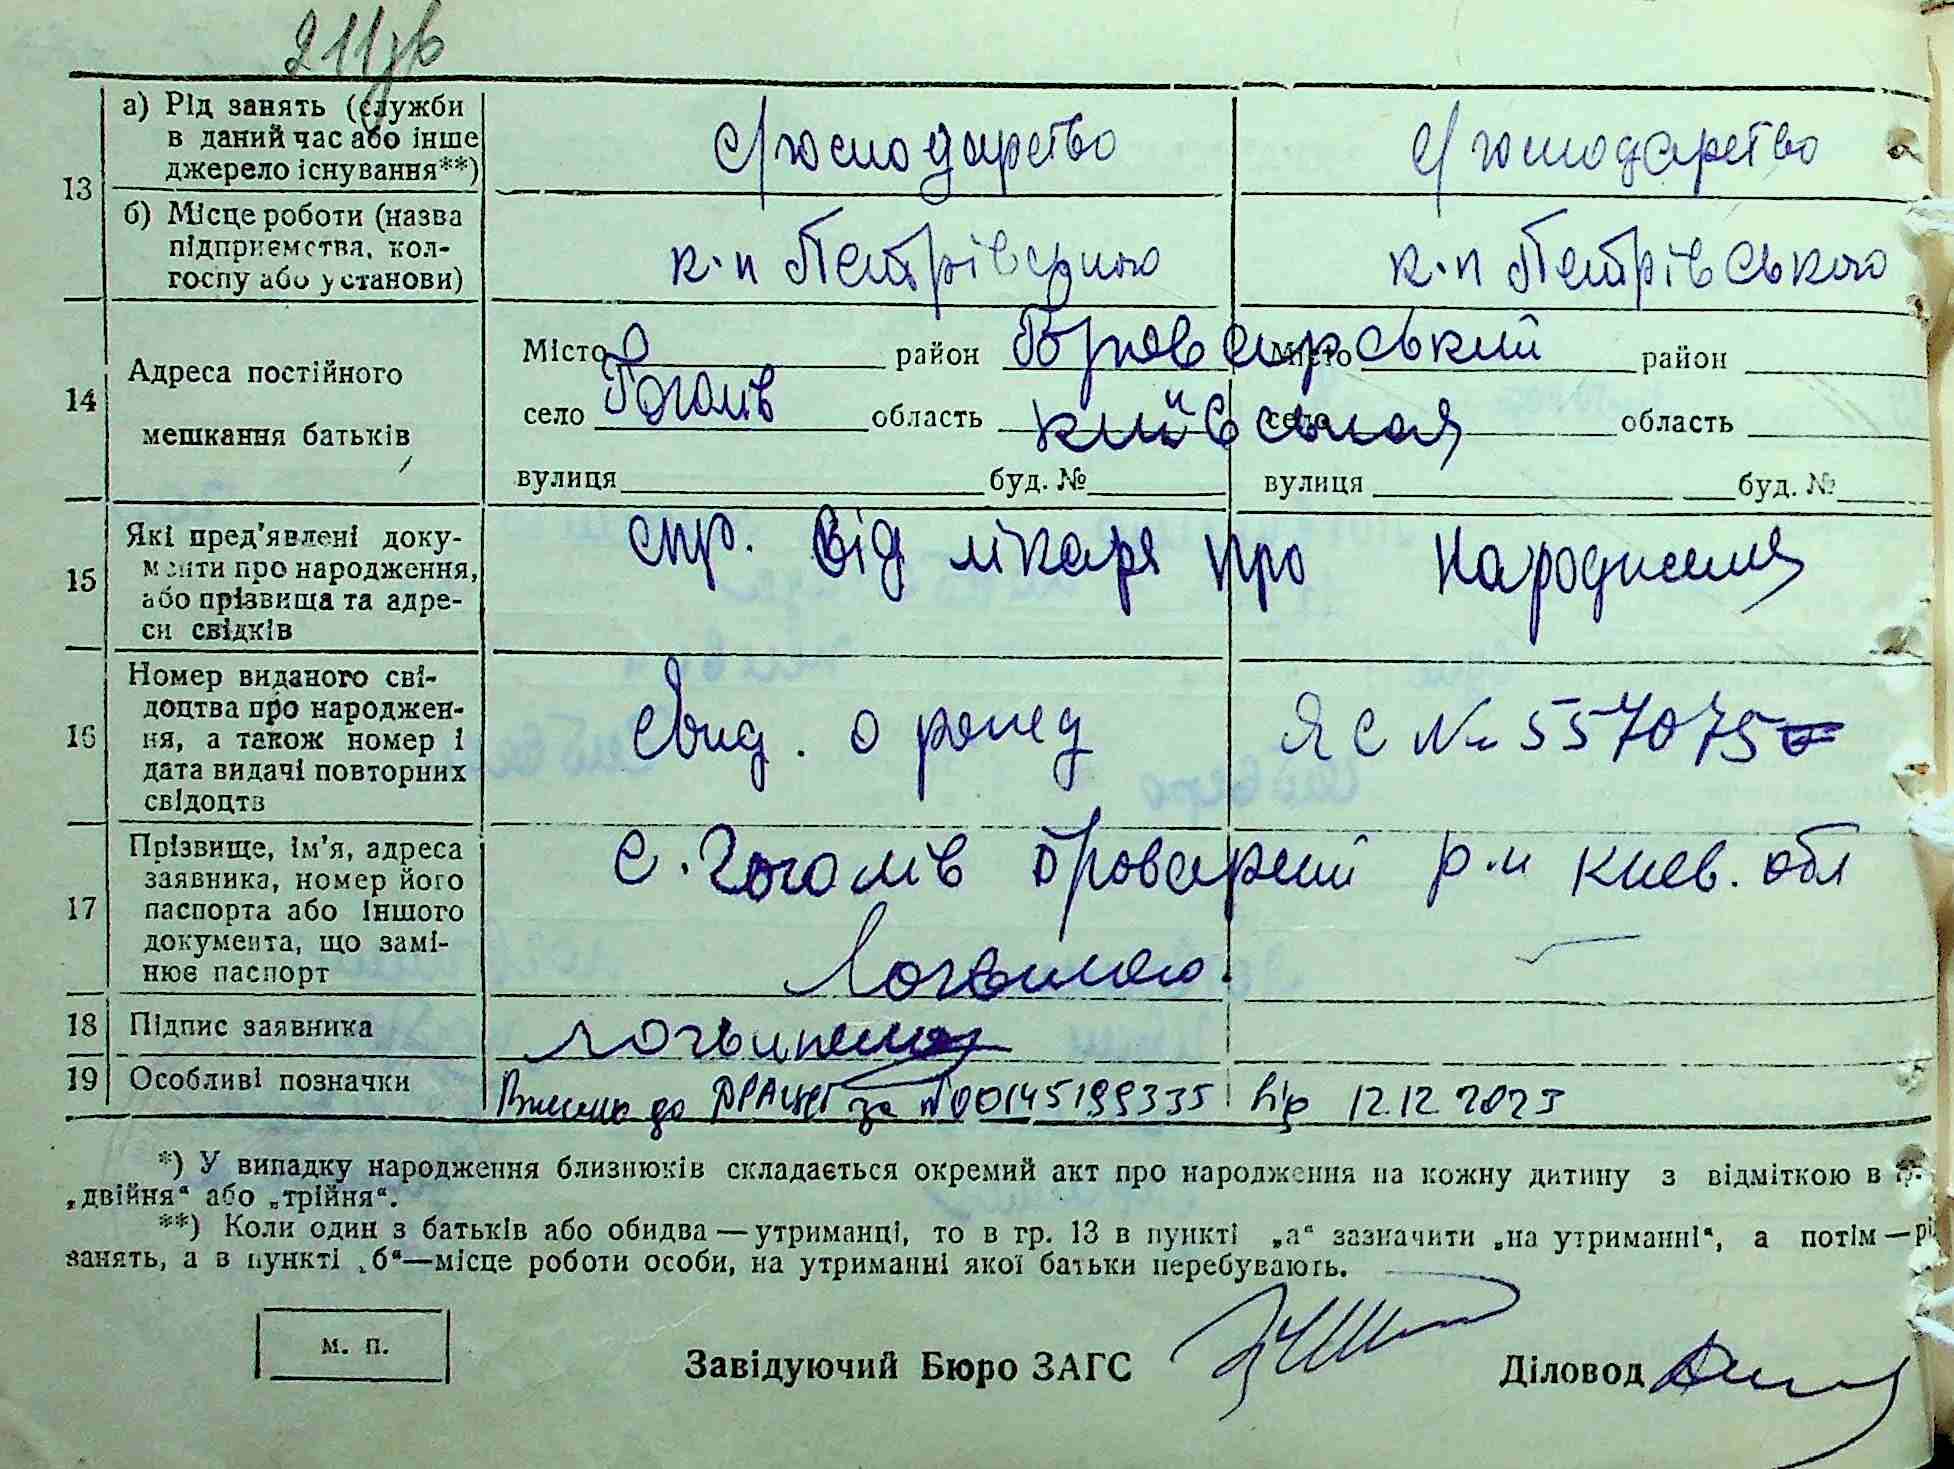 211зв
13 а) Рід занять (служби в даний час або інше джерело існування**) с/господарство с/господарство
б) Місце роботи (назва підприємства, колгоспу або установи) к-п Петрівського к-п Петрівського
14 Адреса постійного мешкання батьків
Місто район Броварський Місто район
село Гоголів область київская село область
вулиця буд. № вулиця буд. №
15 Які пред'явлені документи про народження, або прізвища та адреси свідків спр. від лікаря про народження
16 Номер виданого свідоцтва про народження, а також номер і дата видачі повторних свідоцтв Свид. о рожд ЯС № 557075
17 Прізвище, ім'я, адреса заявника, номер його паспорта або іншого документа, що замінює паспорт с. Гоголів Броварский р-н Киев. обл
18 Підпис заявника
19 Особливі позначки Внесено до ДРАЦСГ за №00145199335 від 12.12.2023
*) У випадку народження близнюків складається окремий акт про народження на кожну дитину з відміткою в гр.
„двійня“ або „трійня“.
**) Коли один з батьків або обидва — утриманці, то в гр. 13 в пункті „а“ зазначити „на утриманні“, а потім — рід
занять, а в пункті „б“—місце роботи особи, на утриманні якої батьки перебувають.
м. п.
Завідуючий Бюро ЗАГС Діловод